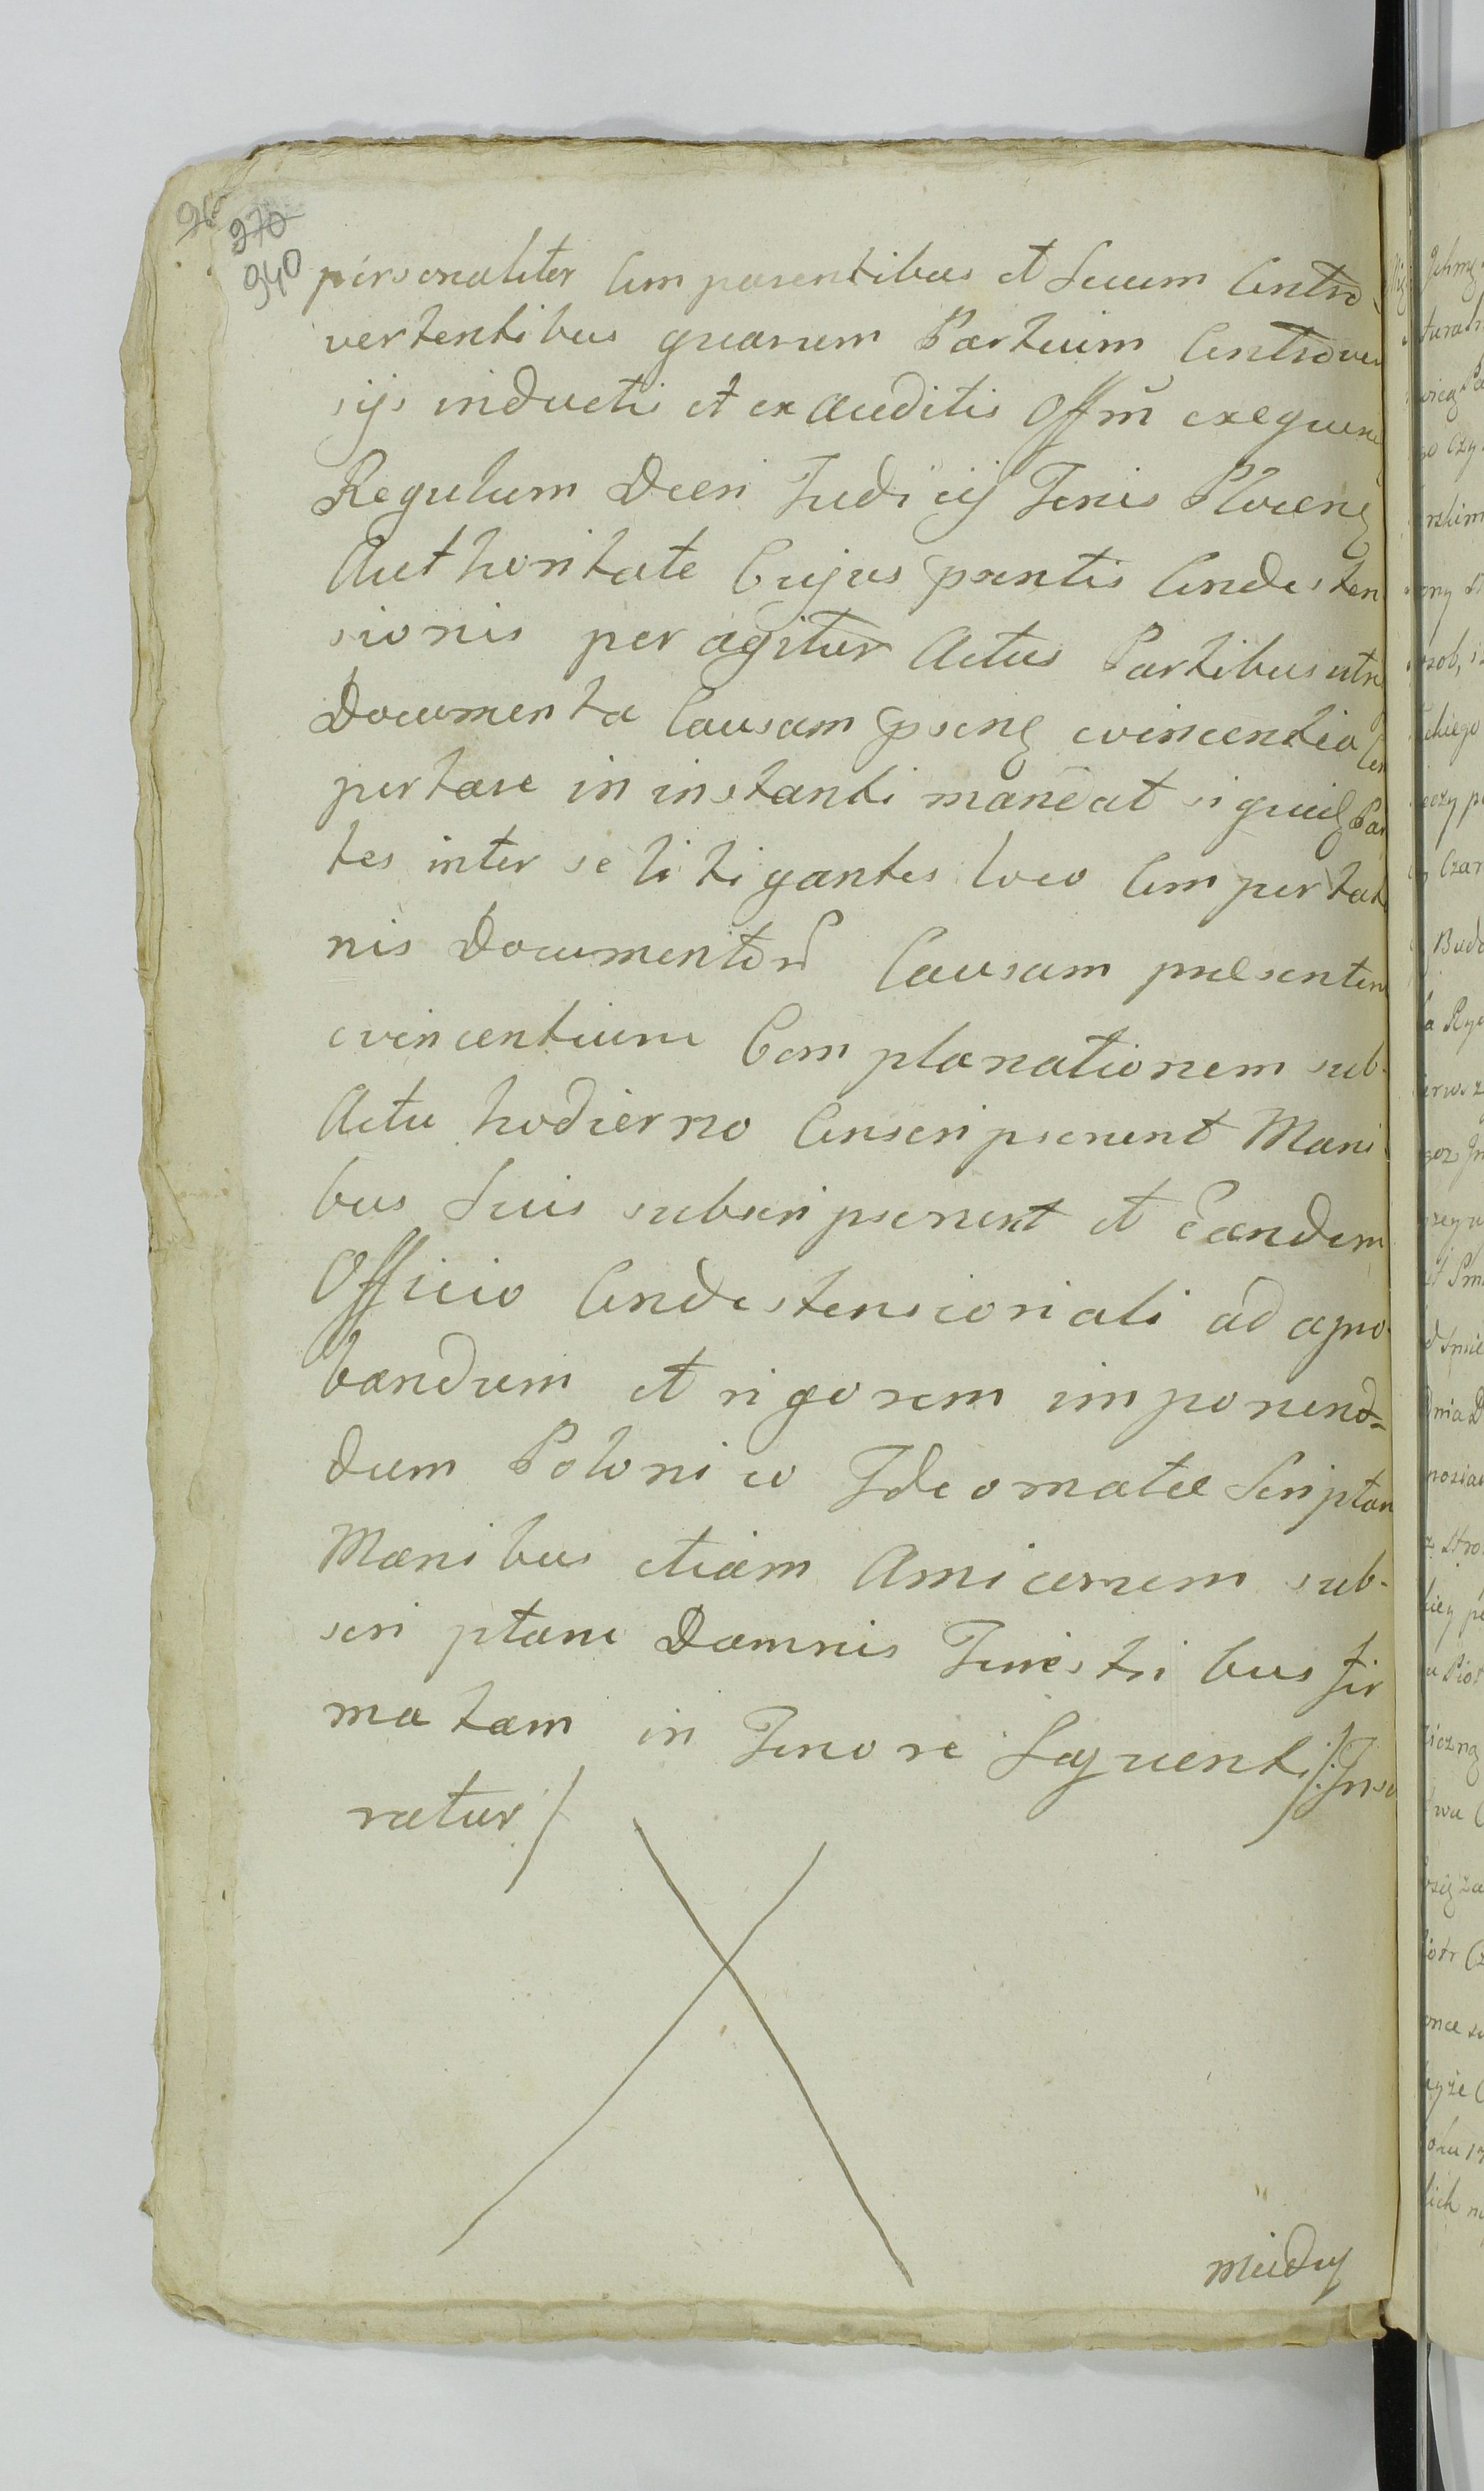 970
940
personaliter Comparentibus et Secum Contro-
vertentibus quarum Partium Controver
sijs inductis et exauditis Offm exequen
Regulam Decri Judicij Tenis Plocens
Authoritate Cujus pntis Condesten
sionis peragitur Actus Partibus utrs
Documenta Causam psens evincentia Com
portare in instanti mandat siquid Par
tes inter se litigantes loco Comportatio
nis Documentor Causam presentem
evincentium Complanationem sub-
Actu hodierno Conscripserunt Mani
bus Suis subscripserunt et Eandem
Officio Condestensionali ad apro-
bandum et rigorem imponend=
dum Polonico Ideomate Scriptam
Manibus etiam Amicorum sub-
scriptam Damnis Terrestribus fir
matam in Tenore Sequenti /: Inse
ratur /
Miedzy